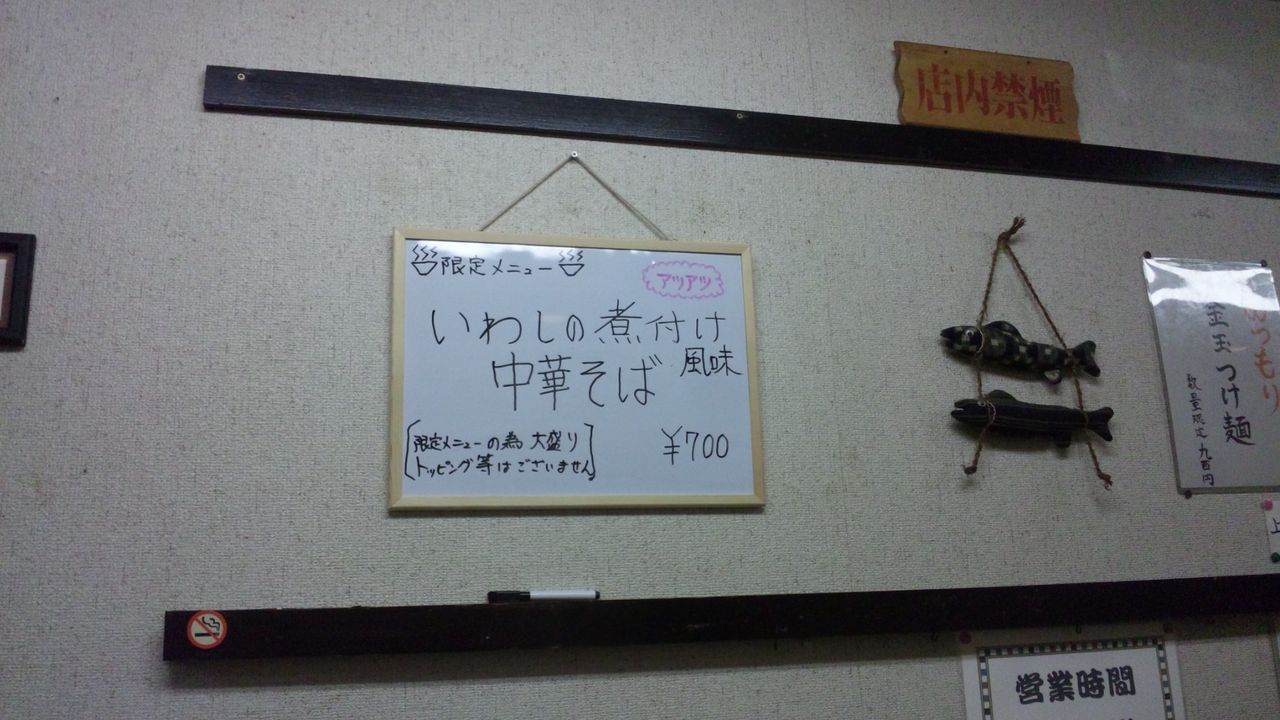 店内禁煙
限定メニュー
アツアツ
いわしの煮付け
風味
中華そば
限定メニューの為 大盛り
トッピング等はございません
¥700
つもり
金玉つけ麺
数量限定 九百円
営業時間